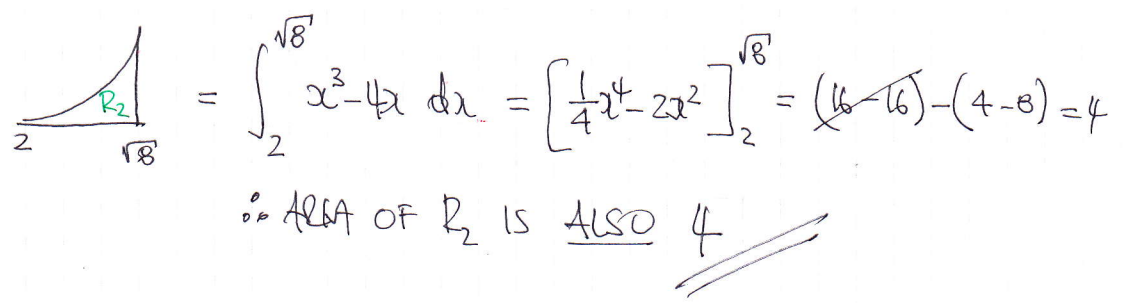 R₂ 2 √8 = ∫₂^√8 x³-4x dx = [¼x⁴-2x²]₂^√8 = (16-16)-(4-8)=4
∴ AREA OF R₂ IS ALSO 4